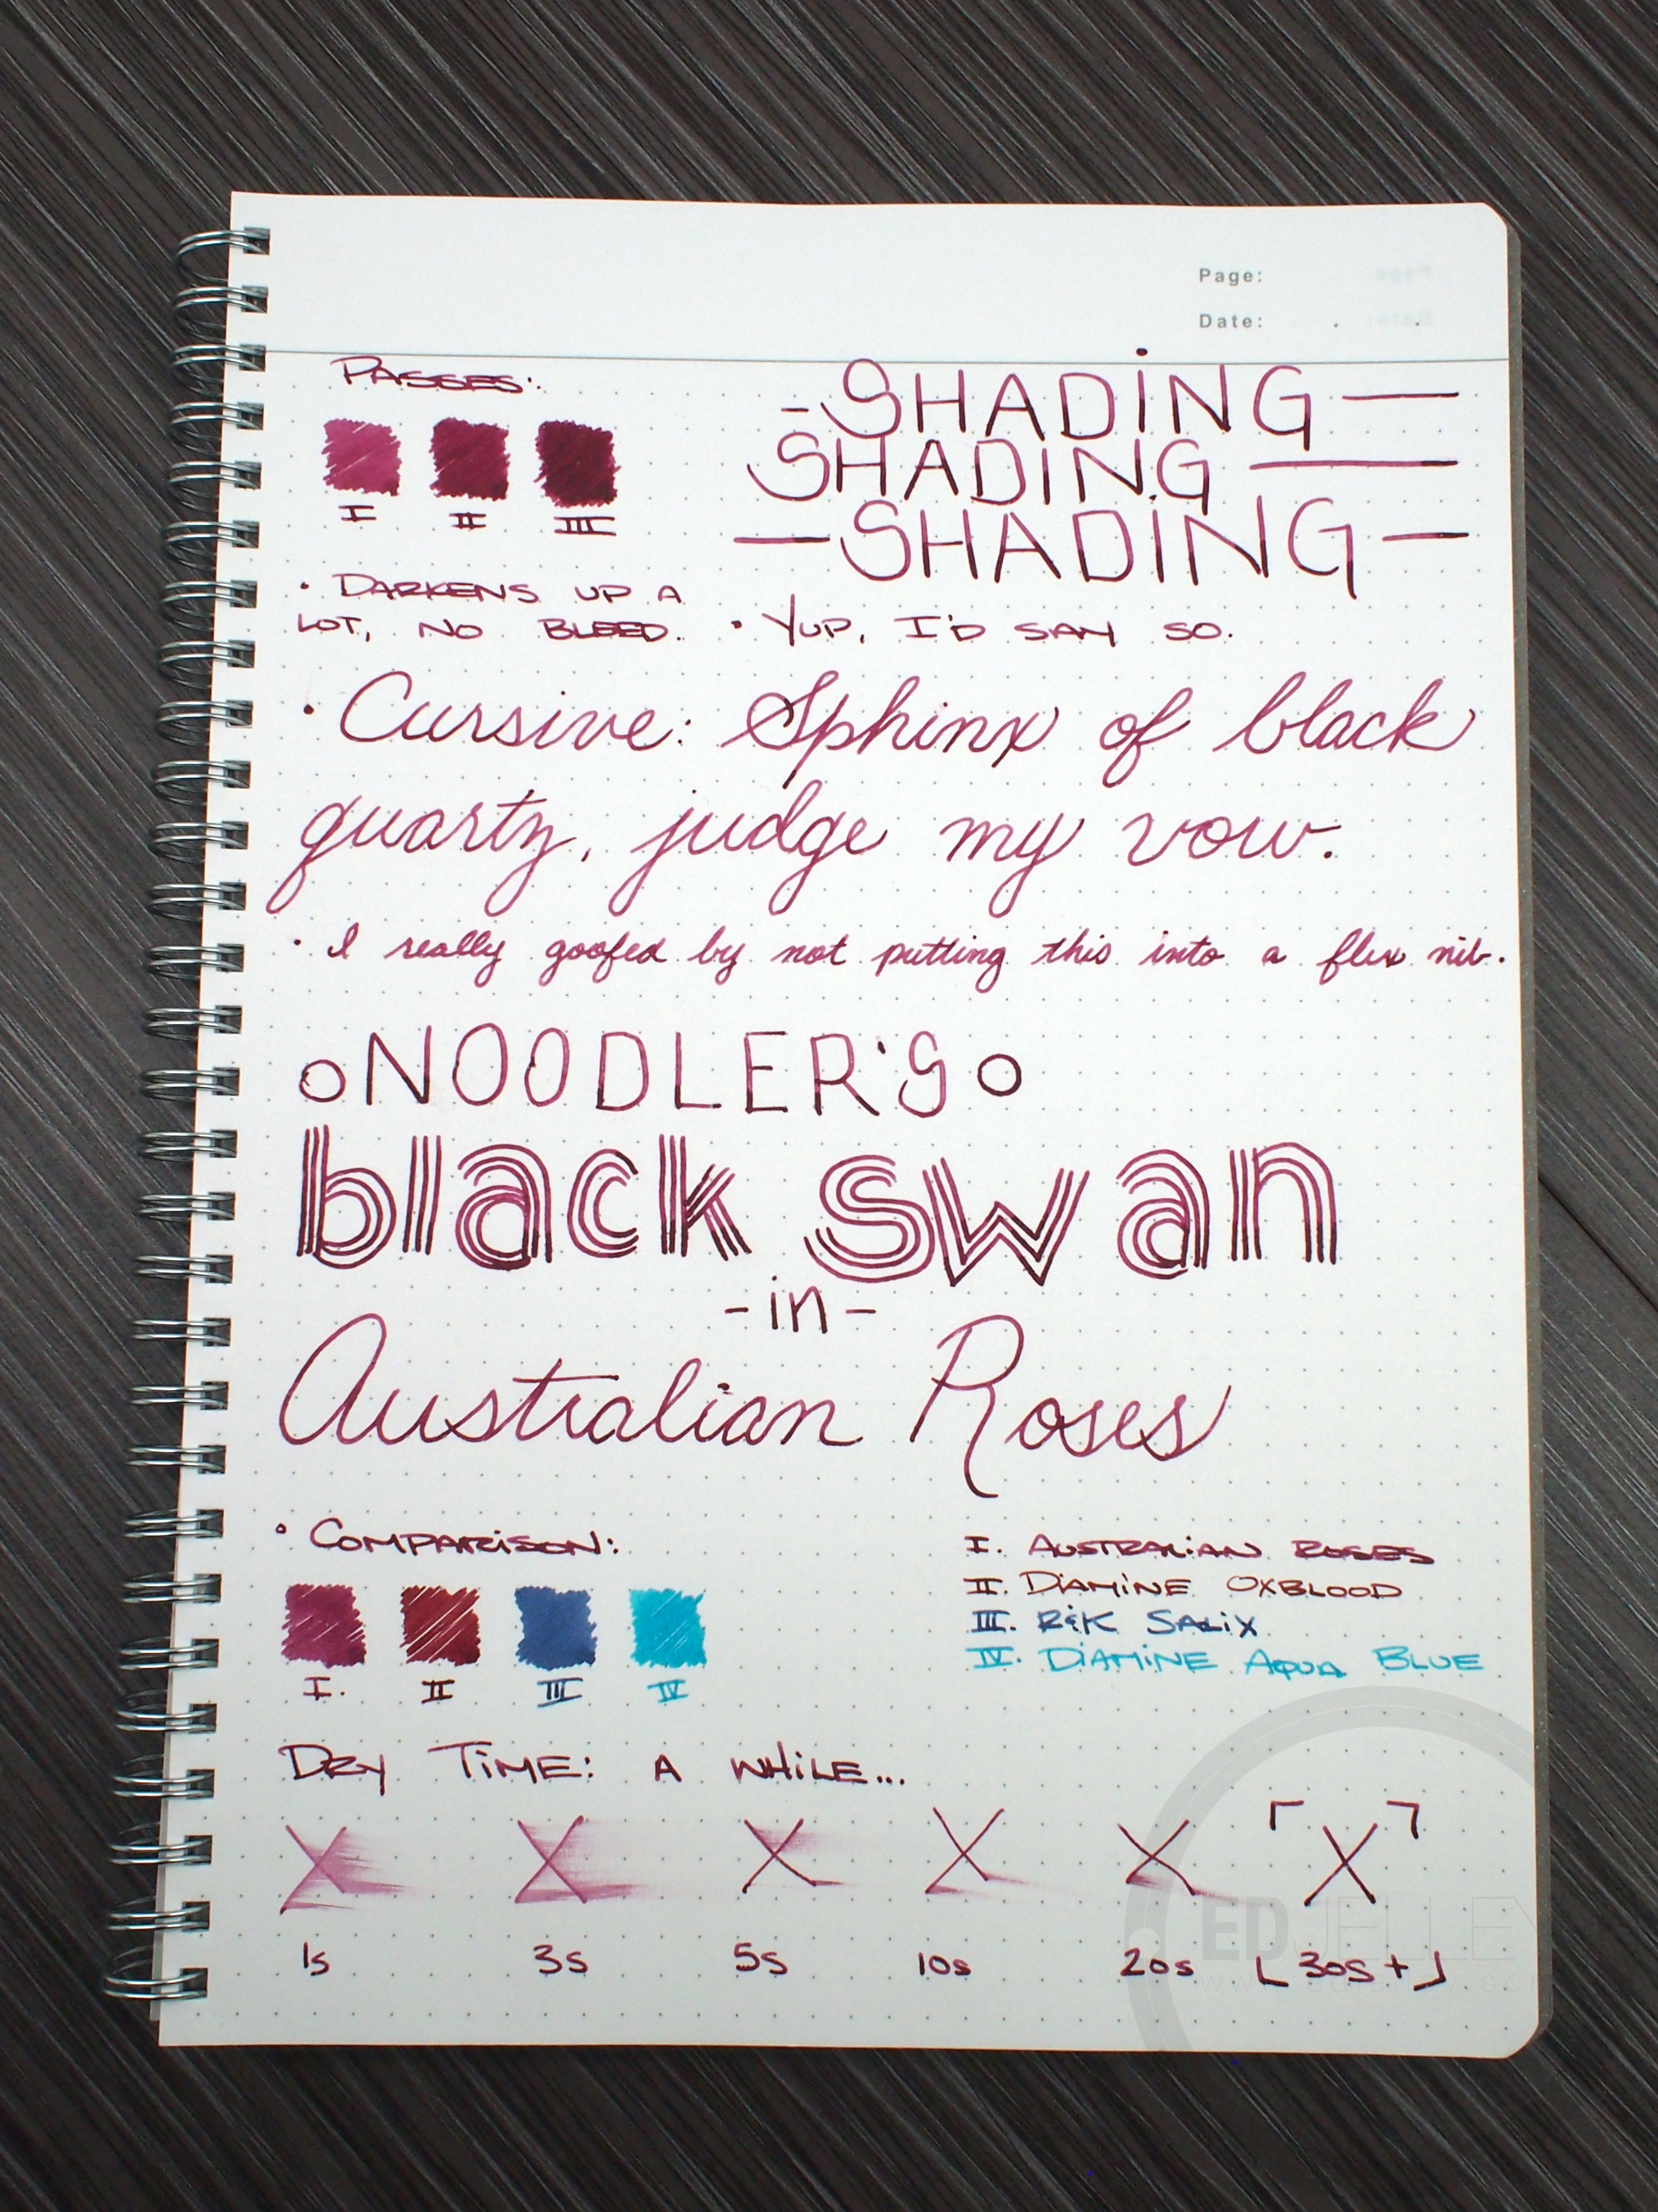 Page:
Date:
PASSES:
I II III
-SHADING—
SHADING—
—SHADING—
• DARKENS UP A
LOT, NO BLEED.
• YUP, I'D SAY SO.
• Cursive: Sphinx of black
quartz, judge my vow.
• I really goofed by not putting this into a flex nib.
NOODLER'S
black swan
-in-
Australian Roses
• COMPARISON:
I. II III IV
I. AUSTRALIAN ROSES
II. DIAMINE OXBLOOD
III. R&K SALIX
IV. DIAMINE AQUA BLUE
DRY TIME: A WHILE...
X X X X X X
1s 3s 5s 10s 20s 30s+
EDJELLEY